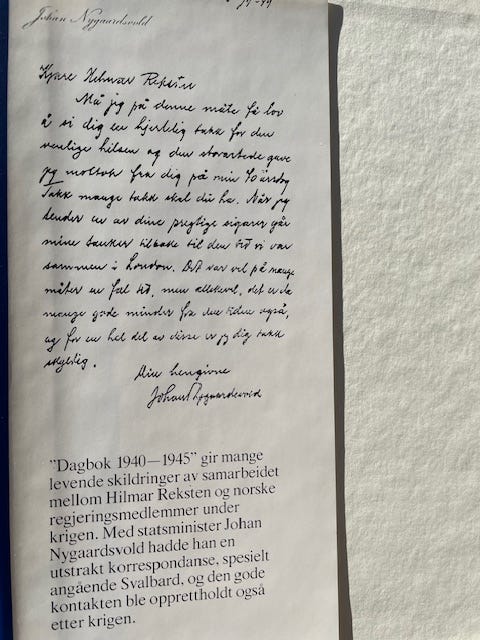 Johan Nygaardsvold
Kjære Hilmar Reksten
Må jeg på denne måte få lov
å si dig en hjertelig takk for den
venlige hilsen og den storartede gave
jeg mottok fra dig på min 70 årsdag
Takk mange takk skal du ha. Når jeg
tender en av dine pregtige sigarer går
mine tanker tilbake til den tid vi var
sammen i London. Det var vel på mange
måter en fæl tid, men allikevel, det er da
mange gode minder fra den tiden også,
og for en hel del av disse er jeg dig takk
skyldig.
Din hengivne
Johan Nygaardsvold
"Dagbok 1940—1945" gir mange
levende skildringer av samarbeidet
mellom Hilmar Reksten og norske
regjeringsmedlemmer under
krigen. Med statsminister Johan
Nygaardsvold hadde han en
utstrakt korrespondanse, spesielt
angående Svalbard, og den gode
kontakten ble opprettholdt også
etter krigen.